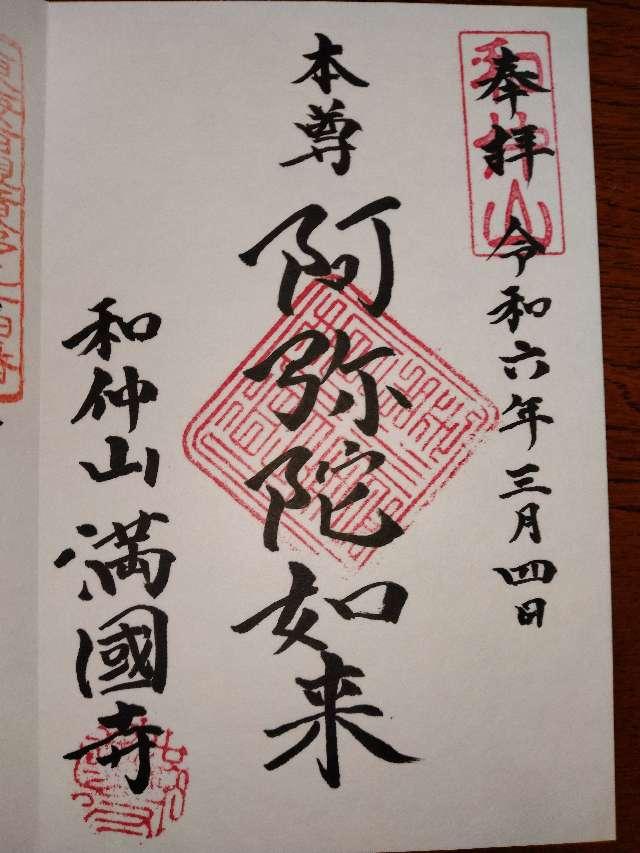 奉拝 令和六年三月四日
本尊
阿弥陀如来
和仲山 満國寺
和仲山